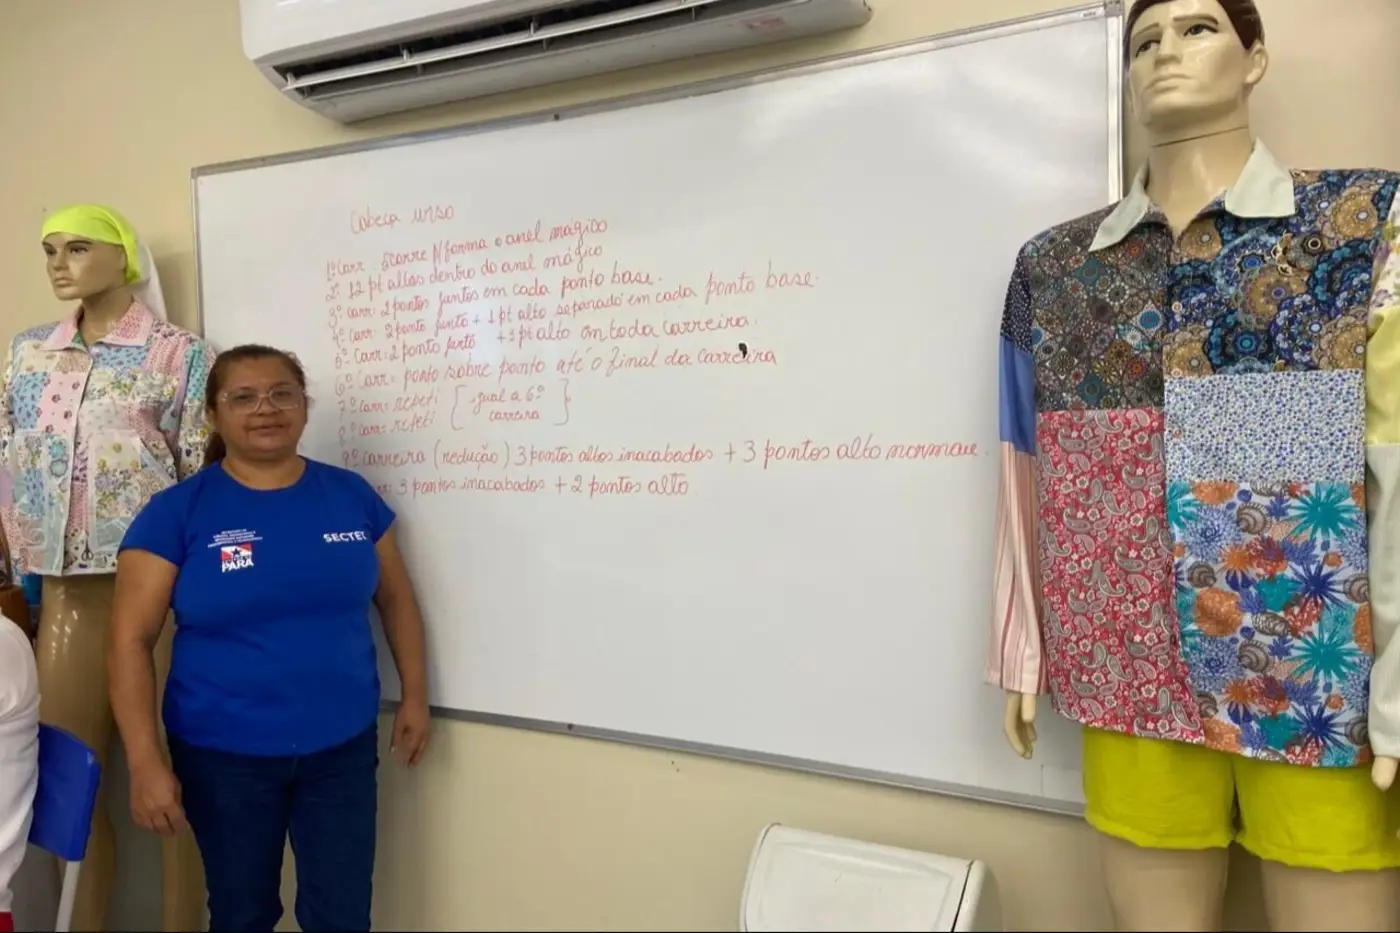 Cabeça urso
1º Carr: 5 corre p/ forma o anel mágico
2º 12 pt altos dentro do anel mágico
3º carr: 2 pontos juntos em cada ponto base.
4º carr: 2 ponto junto + 1 pt alto separado em cada ponto base.
5º Carr: 2 ponto junto + 3 pt alto em toda carreira.
6º Carr: ponto sobre ponto até o final da carreira
7º Carr: repeti [igual a 6º
8º carr: repeti carreira]
9º carreira (redução) 3 pontos altos inacabados + 3 pontos alto normau.
3 pontos inacabados + 2 pontos alto
SECTET
PARÁ